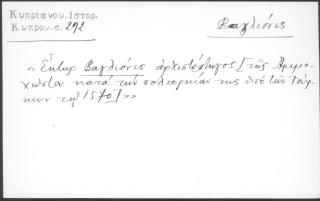 Κυπριανου. Ιστορ.
Κυπρου. σ. 292
Βαγλιόνες
« Έκτωρ Βαγλιόνες ἀρχιστράτηγος [τῆς Ἀμμο-
χώστου κατὰ τὴν πολιορκίαν της ὑπὸ τῶν Τούρ-
κων τῷ 1570] »